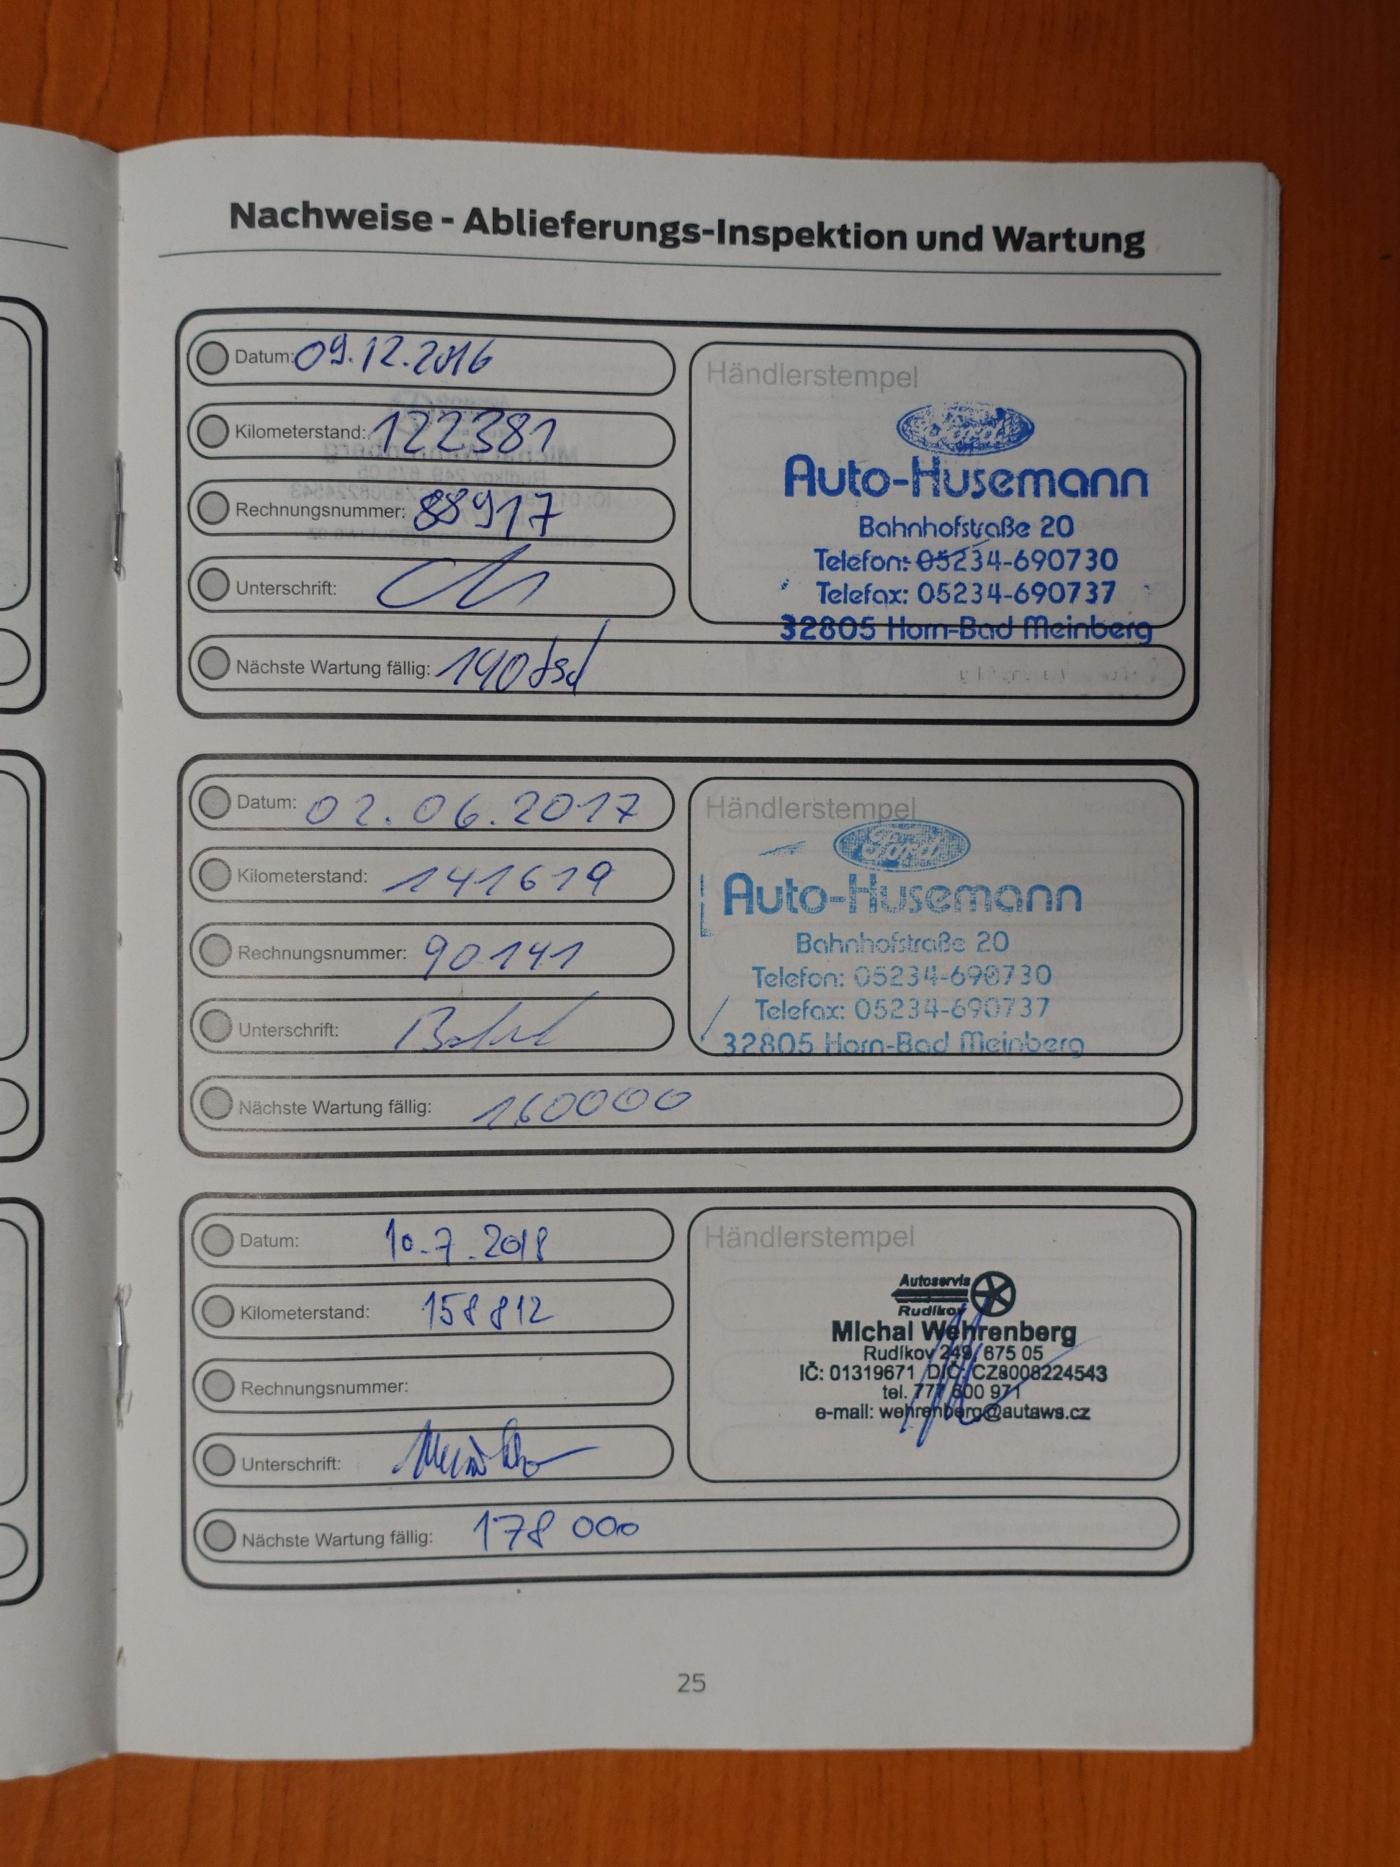 Nachweise - Ablieferungs-Inspektion und Wartung
Datum: 09.12.2016
Kilometerstand: 122381
Rechnungsnummer: 88917
Unterschrift:
Nächste Wartung fällig: 140tsd
Händlerstempel
Ford
Auto-Husemann
Bahnhofstraße 20
Telefon: 05234-690730
Telefax: 05234-690737
32805 Horn-Bad Meinberg
Datum: 02.06.2017
Kilometerstand: 141619
Rechnungsnummer: 90141
Unterschrift:
Nächste Wartung fällig: 160000
Händlerstempel
Ford
Auto-Husemann
Bahnhofstraße 20
Telefon: 05234-690730
Telefax: 05234-690737
32805 Horn-Bad Meinberg
Datum: 10.7.2018
Kilometerstand: 158812
Rechnungsnummer:
Unterschrift:
Nächste Wartung fällig: 178 000
Händlerstempel
Autoservis
Rudíkov
Michal Wehrenberg
Rudíkov 249, 675 05
IČ: 01319671 DIČ: CZ8008224543
tel. 777 600 971
e-mail: wehrenberg@autaws.cz
25